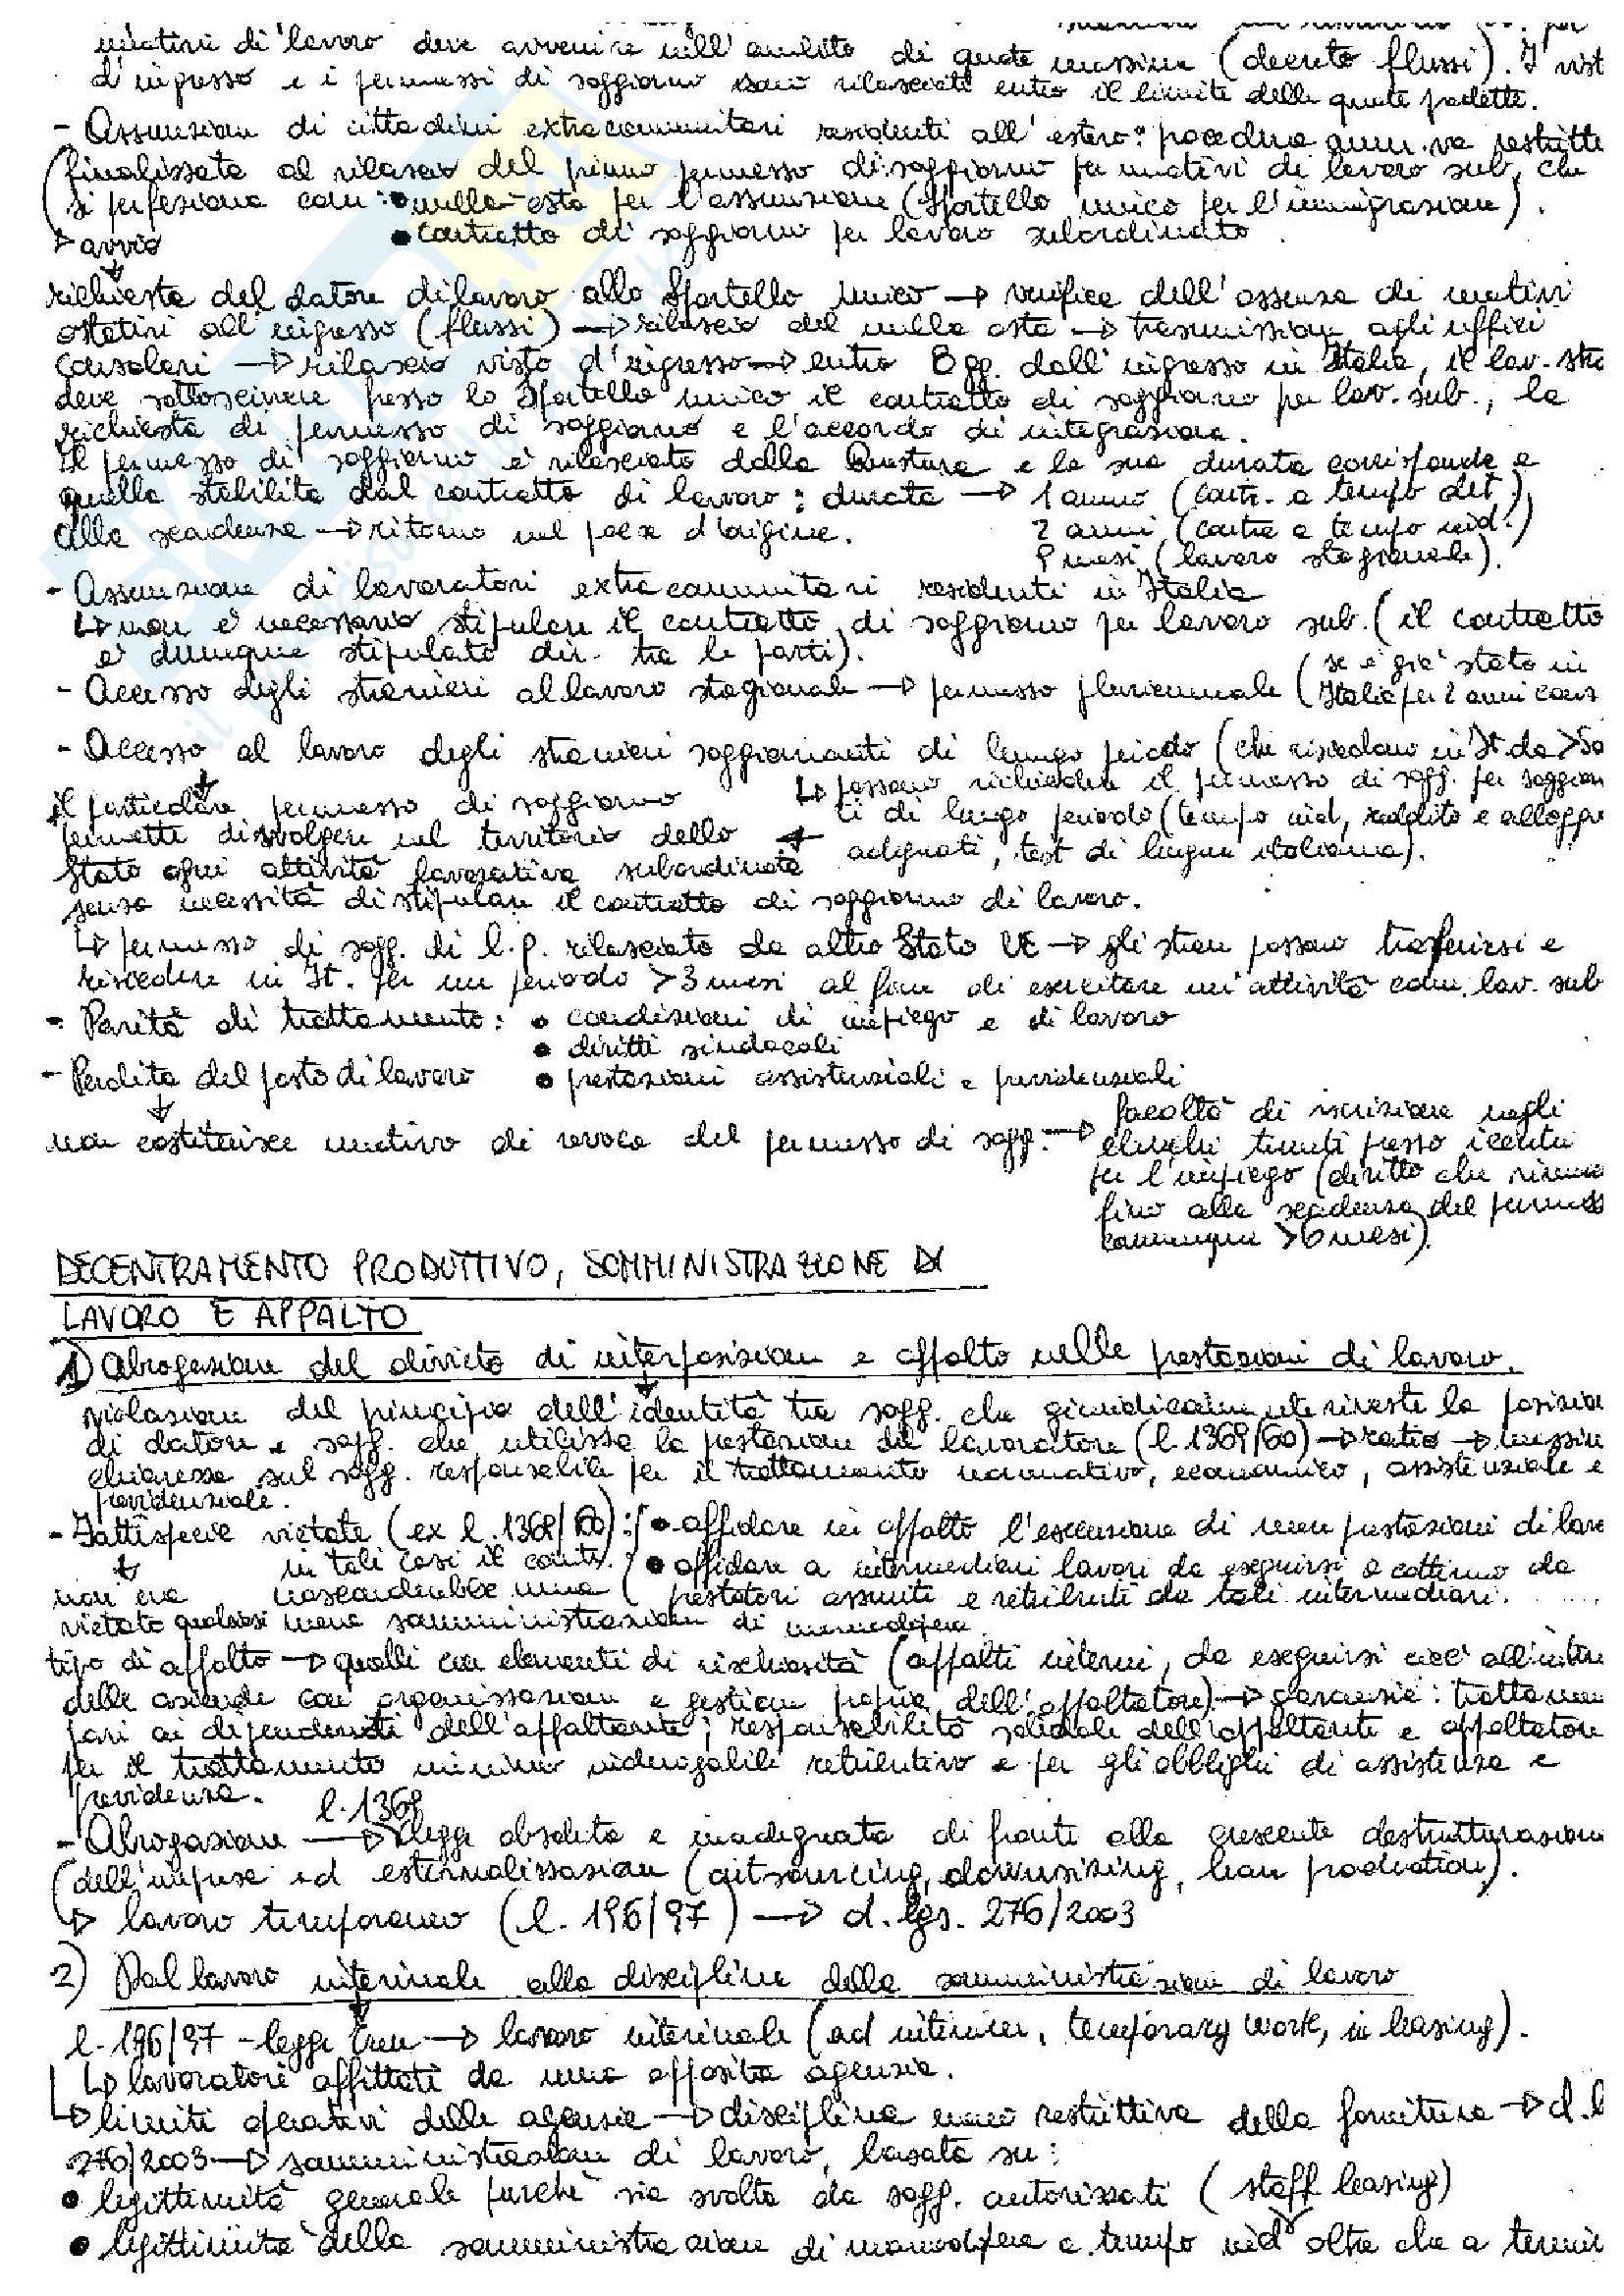 motivi di lavoro deve avvenire nell'ambito di quote massime (decreto flussi). I vist
d'ingresso e i permessi di soggiorno sono rilasciati entro il limite delle quote predette.
- Assunzione di cittadini extracomunitari residenti all'estero: procedura amm.va restritt
(finalizzata al rilascio del primo permesso di soggiorno per motivi di lavoro sub, che
si perfeziona con: • nulla-osta per l'assunzione (Sportello unico per l'immigrazione).
→ avvio • contratto di soggiorno per lavoro subordinato.
richiesta del datore di lavoro allo Sportello Unico → verifica dell'assenza di motivi
ostativi all'ingresso (flussi) → rilascio del nulla osta → trasmissione agli uffici
consolari → rilascio visto d'ingresso → entro 8 gg. dall'ingresso in Italia, il lav. stra
deve sottoscrivere presso lo Sportello unico il contratto di soggiorno per lav. sub., la
richiesta di permesso di soggiorno e l'accordo di integrazione.
Il permesso di soggiorno è rilasciato dalla Questura e la sua durata corrisponde a
quella stabilita dal contratto di lavoro: durata → 1 anno (contr. a tempo det.)
alla scadenza → ritorno nel paese d'origine. 2 anni (contra a tempo ind.)
9 mesi (lavoro stagionale).
- Assunzione di lavoratori extracomunitari residenti in Italia
↳ non è necessario stipulare il contratto di soggiorno per lavoro sub. (il contratto
è dunque stipulato dir. tra le parti).
- Accesso degli stranieri al lavoro stagionale → permesso pluriennale (se è già stato in
Italia per 2 anni cons
- Accesso al lavoro degli stranieri soggiornanti di lungo periodo (che risiedono in It. da >5a
↳ possono richiedere il permesso di sogg. per soggiorn
ti di lungo periodo (tempo ind, reddito e allogg
adeguati, test di lingua italiana).
il particolare permesso di soggiorno
permette di svolgere nel territorio dello
Stato ogni attività lavorativa subordinata
senza necessità di stipulare il contratto di soggiorno di lavoro.
↳ permesso di sogg. di l.p. rilasciato da altro Stato UE → gli stran possono trasferirsi e
risiedere in It. per un periodo >3 mesi al fine di esercitare un'attività com. lav. sub
- Parità di trattamento: • condizioni di impiego e di lavoro
• diritti sindacali
- Perdita del posto di lavoro • prestazioni assistenziali e previdenziali
non costituisce motivo di revoca del permesso di sogg. → facoltà di iscrizione negli
elenchi tenuti presso i centri
per l'impiego (diritto che riman
fino alla scadenza del permess
comunque >6 mesi).
DECENTRAMENTO PRODUTTIVO, SOMMINISTRAZIONE DI
LAVORO E APPALTO
1) Abrogazione del divieto di interposizione e appalto nelle prestazioni di lavoro.
violazione del principio dell'identità tra sogg. che giuridicamente riveste la posizion
di datore e sogg. che utilizza la prestazione del lavoratore (l. 1369/60) → ratio → massim
chiarezza sul sogg. responsabile per il trattamento normativo, economico, assistenziale e
previdenziale.
- Fattispecie vietate (ex l. 1369/60): • affidare in appalto l'esecuzione di mere prestazioni di lavo
in tali casi il contr. • affidare a intermediari lavori da eseguirsi a cottimo da
nasconderebbe una prestatori assunti e retribuiti da tali intermediari.
mera somministrazione di manodopera
non era
vietato qualsiasi
tipo di appalto → quelli con elementi di rischiosità (appalti interni, da eseguirsi cioè all'inter
delle aziende con organizzazione e gestione propria dell'appaltatore) → garanzie: trattamen
pari ai dipendenti dell'appaltante; responsabilità solidale dell'appaltante e appaltatore
per il trattamento minimo inderogabile retributivo e per gli obblighi di assistenza e
previdenza.
- Abrogazione l. 1369 → legge obsoleta e inadeguata di fronte alla crescente destrutturazione
(dell'impresa ed esternalizzazione (outsourcing, downsizing, lean production).
↳ lavoro temporaneo (l. 196/97) → d.lgs. 276/2003
2) Dal lavoro interinale alla disciplina della somministrazione di lavoro
l. 196/97 - legge Treu → lavoro interinale (ad interim, temporary work, in leasing).
↳ lavoratori affittati da una apposita agenzia.
↳ limiti operativi delle agenzie → disciplina meno restrittiva della fornitura → d.l
276/2003 → somministrazione di lavoro, basata su:
• legittimità generale purchè sia svolta da sogg. autorizzati (staff leasing)
• legittimità della somministrazione di manodopera a tempo ind° oltre che a termin